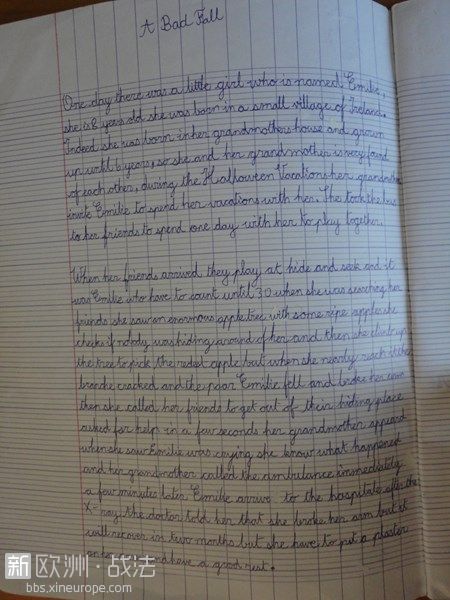 A Bad Fall
One day there was a little girl who is named Emilie,
she is 8 years old she was born in a small village of Ireland.
Indeed she was born in her grandmothers house and grown
up until 6 years, so she and her grandmother is very fond
of each other, during the Halloween Vacations her grandmother
invite Emilie to spend her vacations with her. She took the bus
to her friends to spend one day with her to play together.
When her friends arrived they play at hide and seek and it
was Emilie who have to count until 30 when she was searching her
friends she saw an enormous apple tree with some ripe apples she
cheks if nobody was hiding around of her and then she climb up
the tree to pick the redest apple but when she nearly reach it the
branche cracked and the poor Emilie fell and broke her arm
then she called her friends to get out of their hiding place
asked for help in a few seconds her grandmother appeard
when she saw Emilie was crying she know what happened
and her grandmother called the ambulance immediately
a few minutes later Emilie arrive to the hospitale after the
X-ray the doctor told her that she broke her arm but it
will recover in two months but she have to put a plaster
and have a good rest.
新欧洲·战法
bbs.xineurope.com